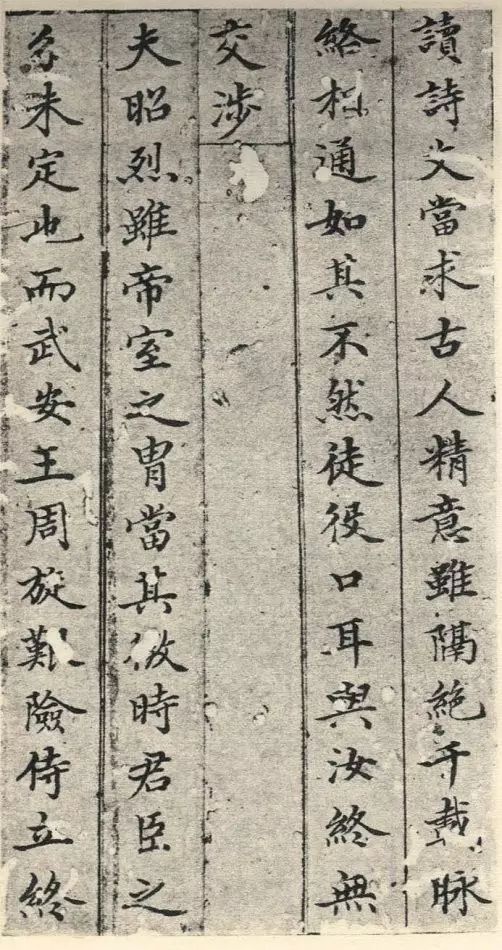 讀詩文當求古人精意雖隔絶千載脉
絡相通如其不然徒役口耳與汝終無
交涉
夫昭烈雖帝室之胄當其微時君臣之
名未定也而武安王周旋艱險侍立終